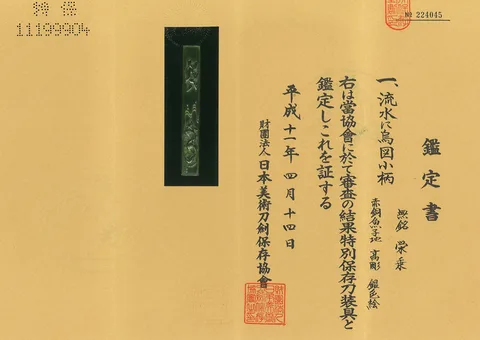 特保
11199904
№ 224045
鑑定書
一、流水に烏図小柄
無銘 栄乗
赤銅魚子地 高彫 銀色絵
右は當協會に於て審査の結果特別保存刀装具と
鑑定しこれを証する
平成十一年四月十四日
財團法人日本美術刀劍保存協會